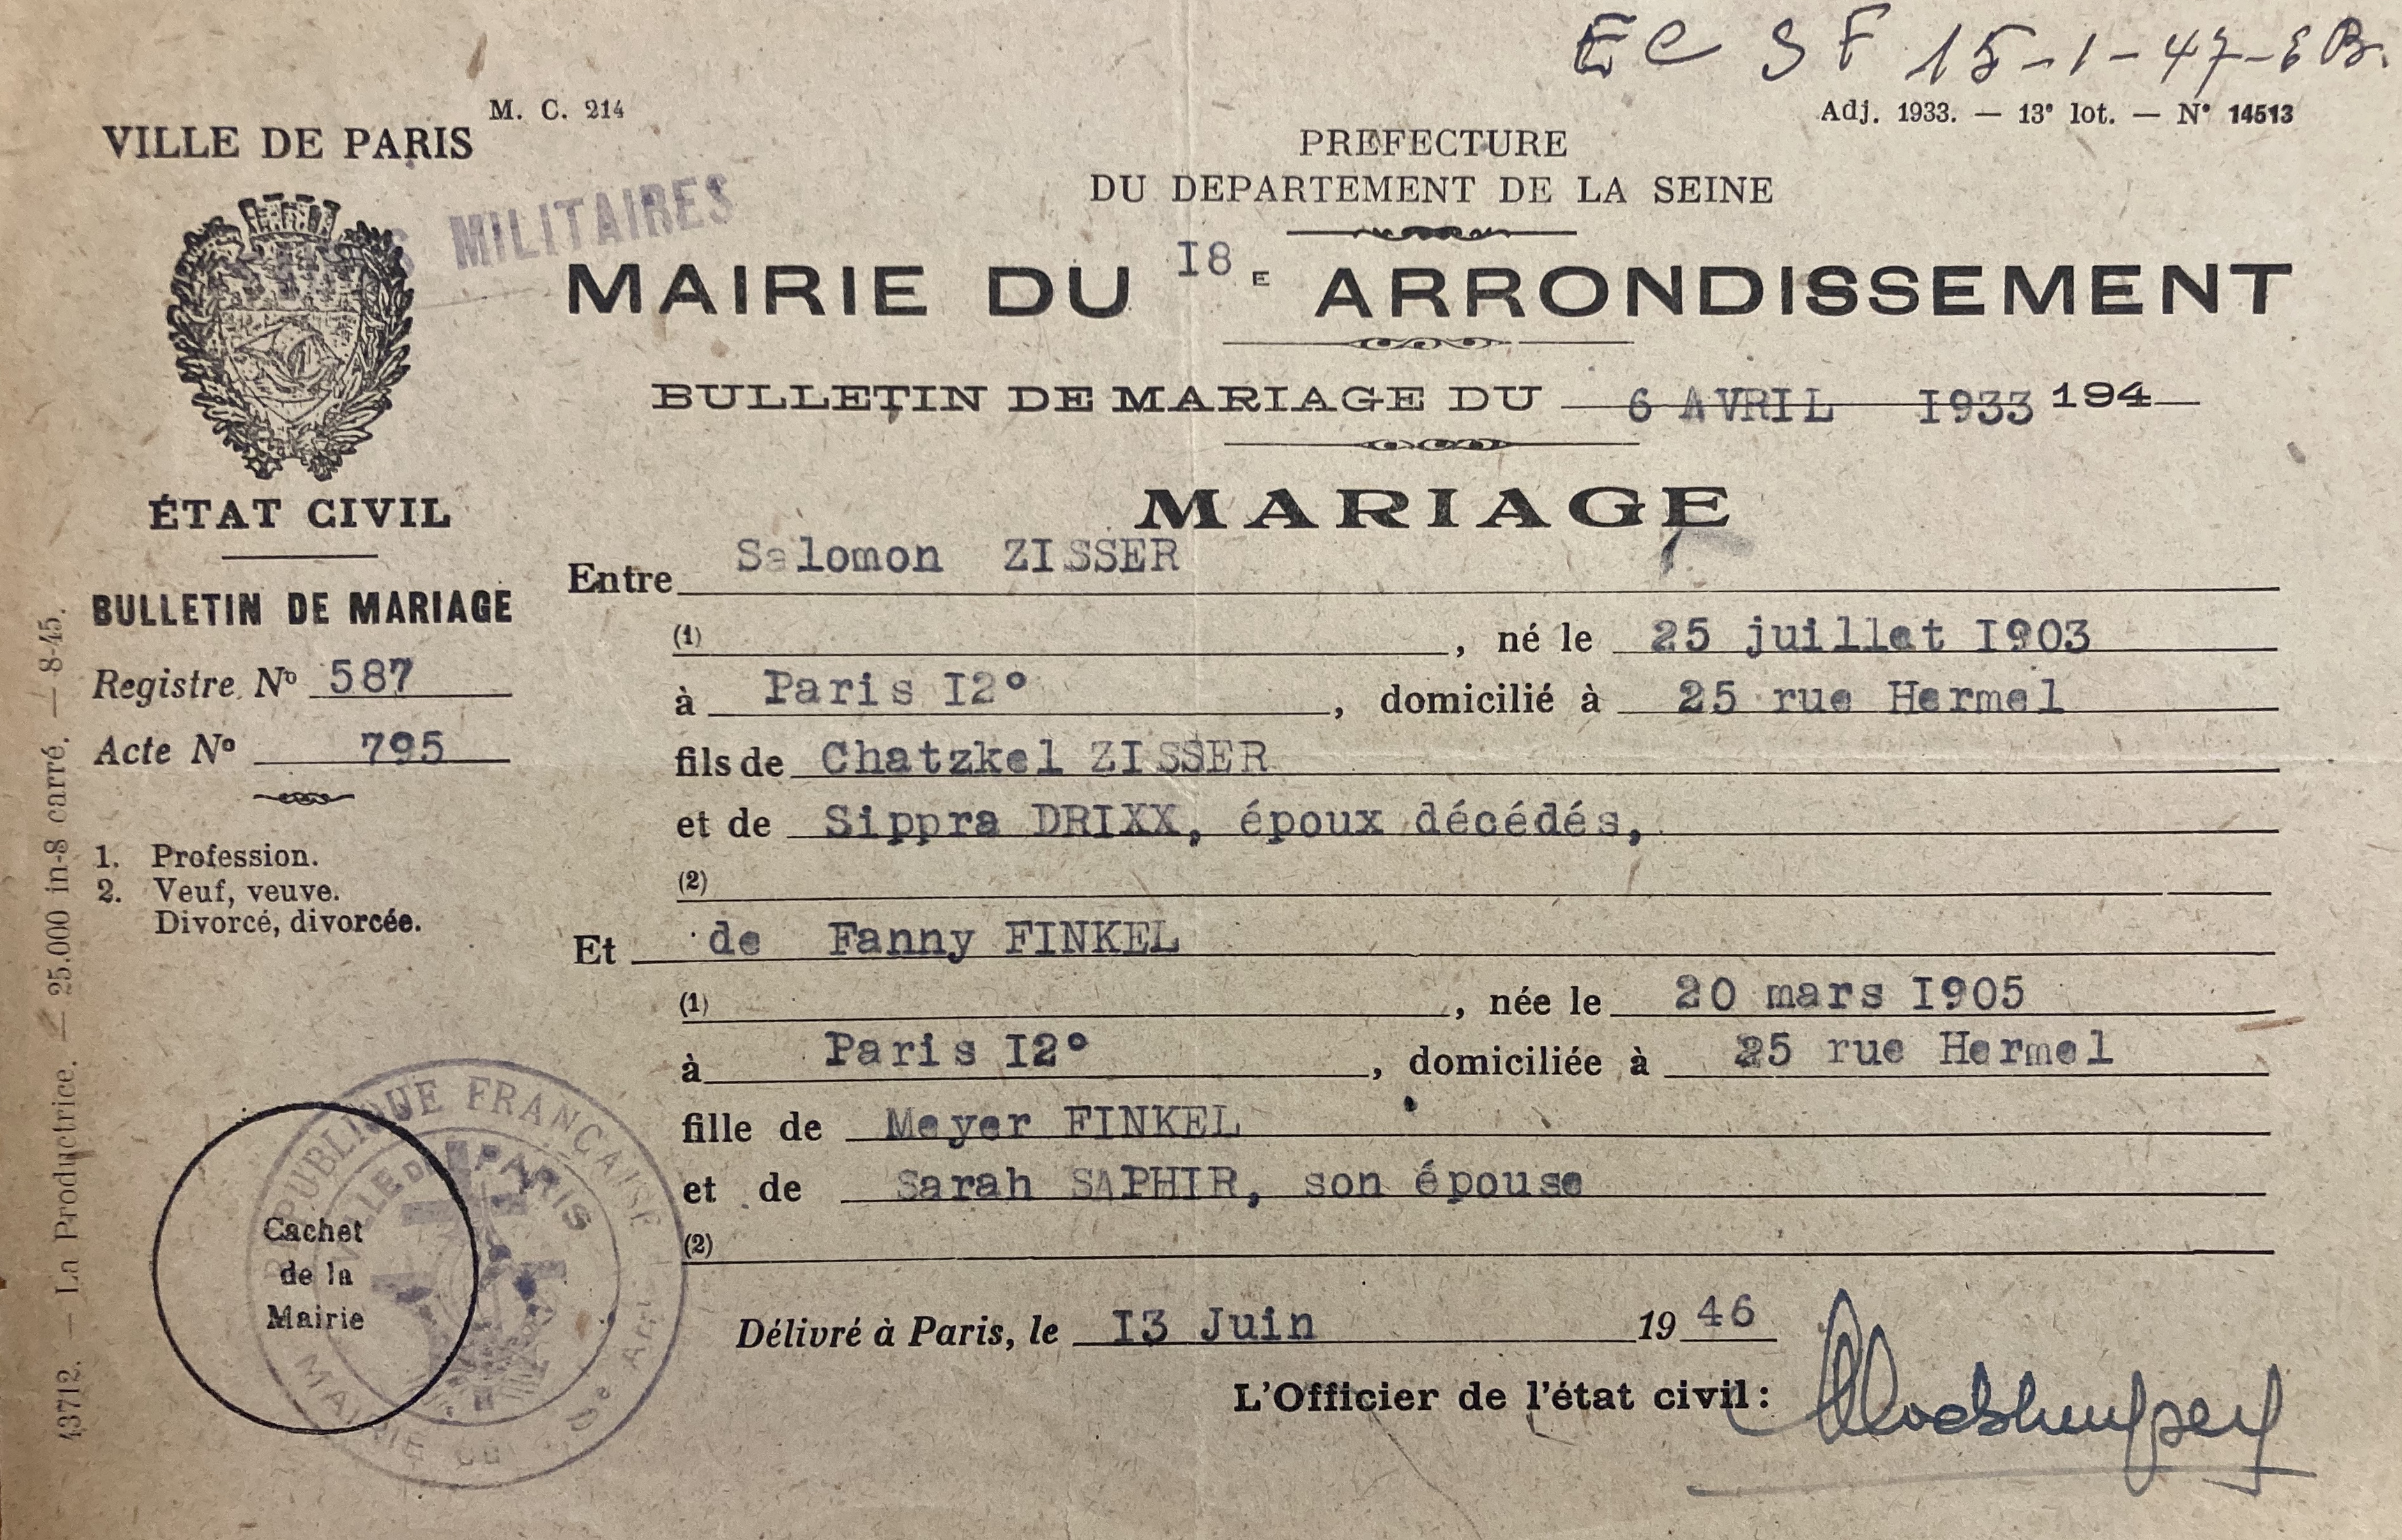 EC SF 15-1-47-EB.
M. C. 214
Adj. 1933. — 13e lot. — N° 14513
VILLE DE PARIS
MILITAIRES
ÉTAT CIVIL
BULLETIN DE MARIAGE
Registre N° 587
Acte N° 795
1. Profession.
2. Veuf, veuve.
Divorcé, divorcée.
43712. — La Productrice. — 25.000 in-8 carré. — 8-45.
PREFECTURE
DU DEPARTEMENT DE LA SEINE
MAIRIE DU I8E ARRONDISSEMENT
BULLETIN DE MARIAGE DU 6 AVRIL I933 194
MARIAGE
Entre Salomon ZISSER
(1) , né le 25 juillet I903
à Paris I2° , domicilié à 25 rue Hermel
fils de Chatzkel ZISSER
et de Sippra DRIXX, époux décédés,
(2)
Et de Fanny FINKEL
(1) , née le 20 mars I905
à Paris I2° , domiciliée à 25 rue Hermel
fille de Meyer FINKEL
et de Sarah SAPHIR, son épouse
(2)
Délivré à Paris, le I3 Juin 1946
L'Officier de l'état civil :
Cachet
de la
Mairie
RÉPUBLIQUE FRANÇAISE
VILLE DE PARIS
MAIRIE DU Arrt